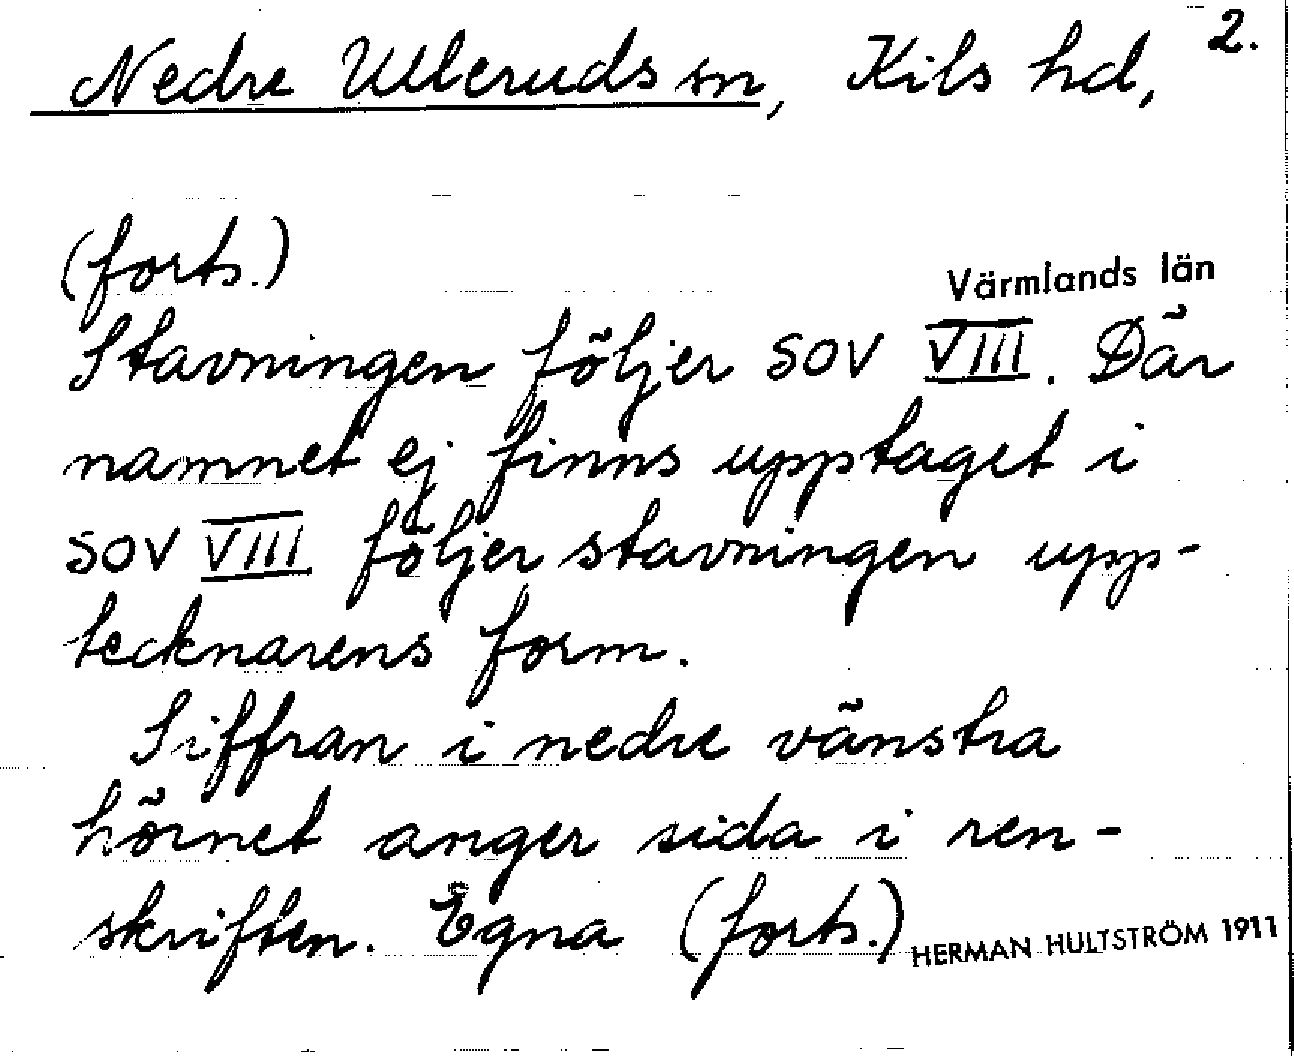 Nedre Ulleruds sn, Kils hd, 2.
(forts.)
Värmlands län
Stavningen följer SOV VIII. Där
namnet ej finns upptaget i
SOV VIII följer stavningen upp-
tecknarens form.
Siffran i nedre vänstra
hörnet anger sida i ren-
skriften. Egna (forts.)
HERMAN HULTSTRÖM 1911